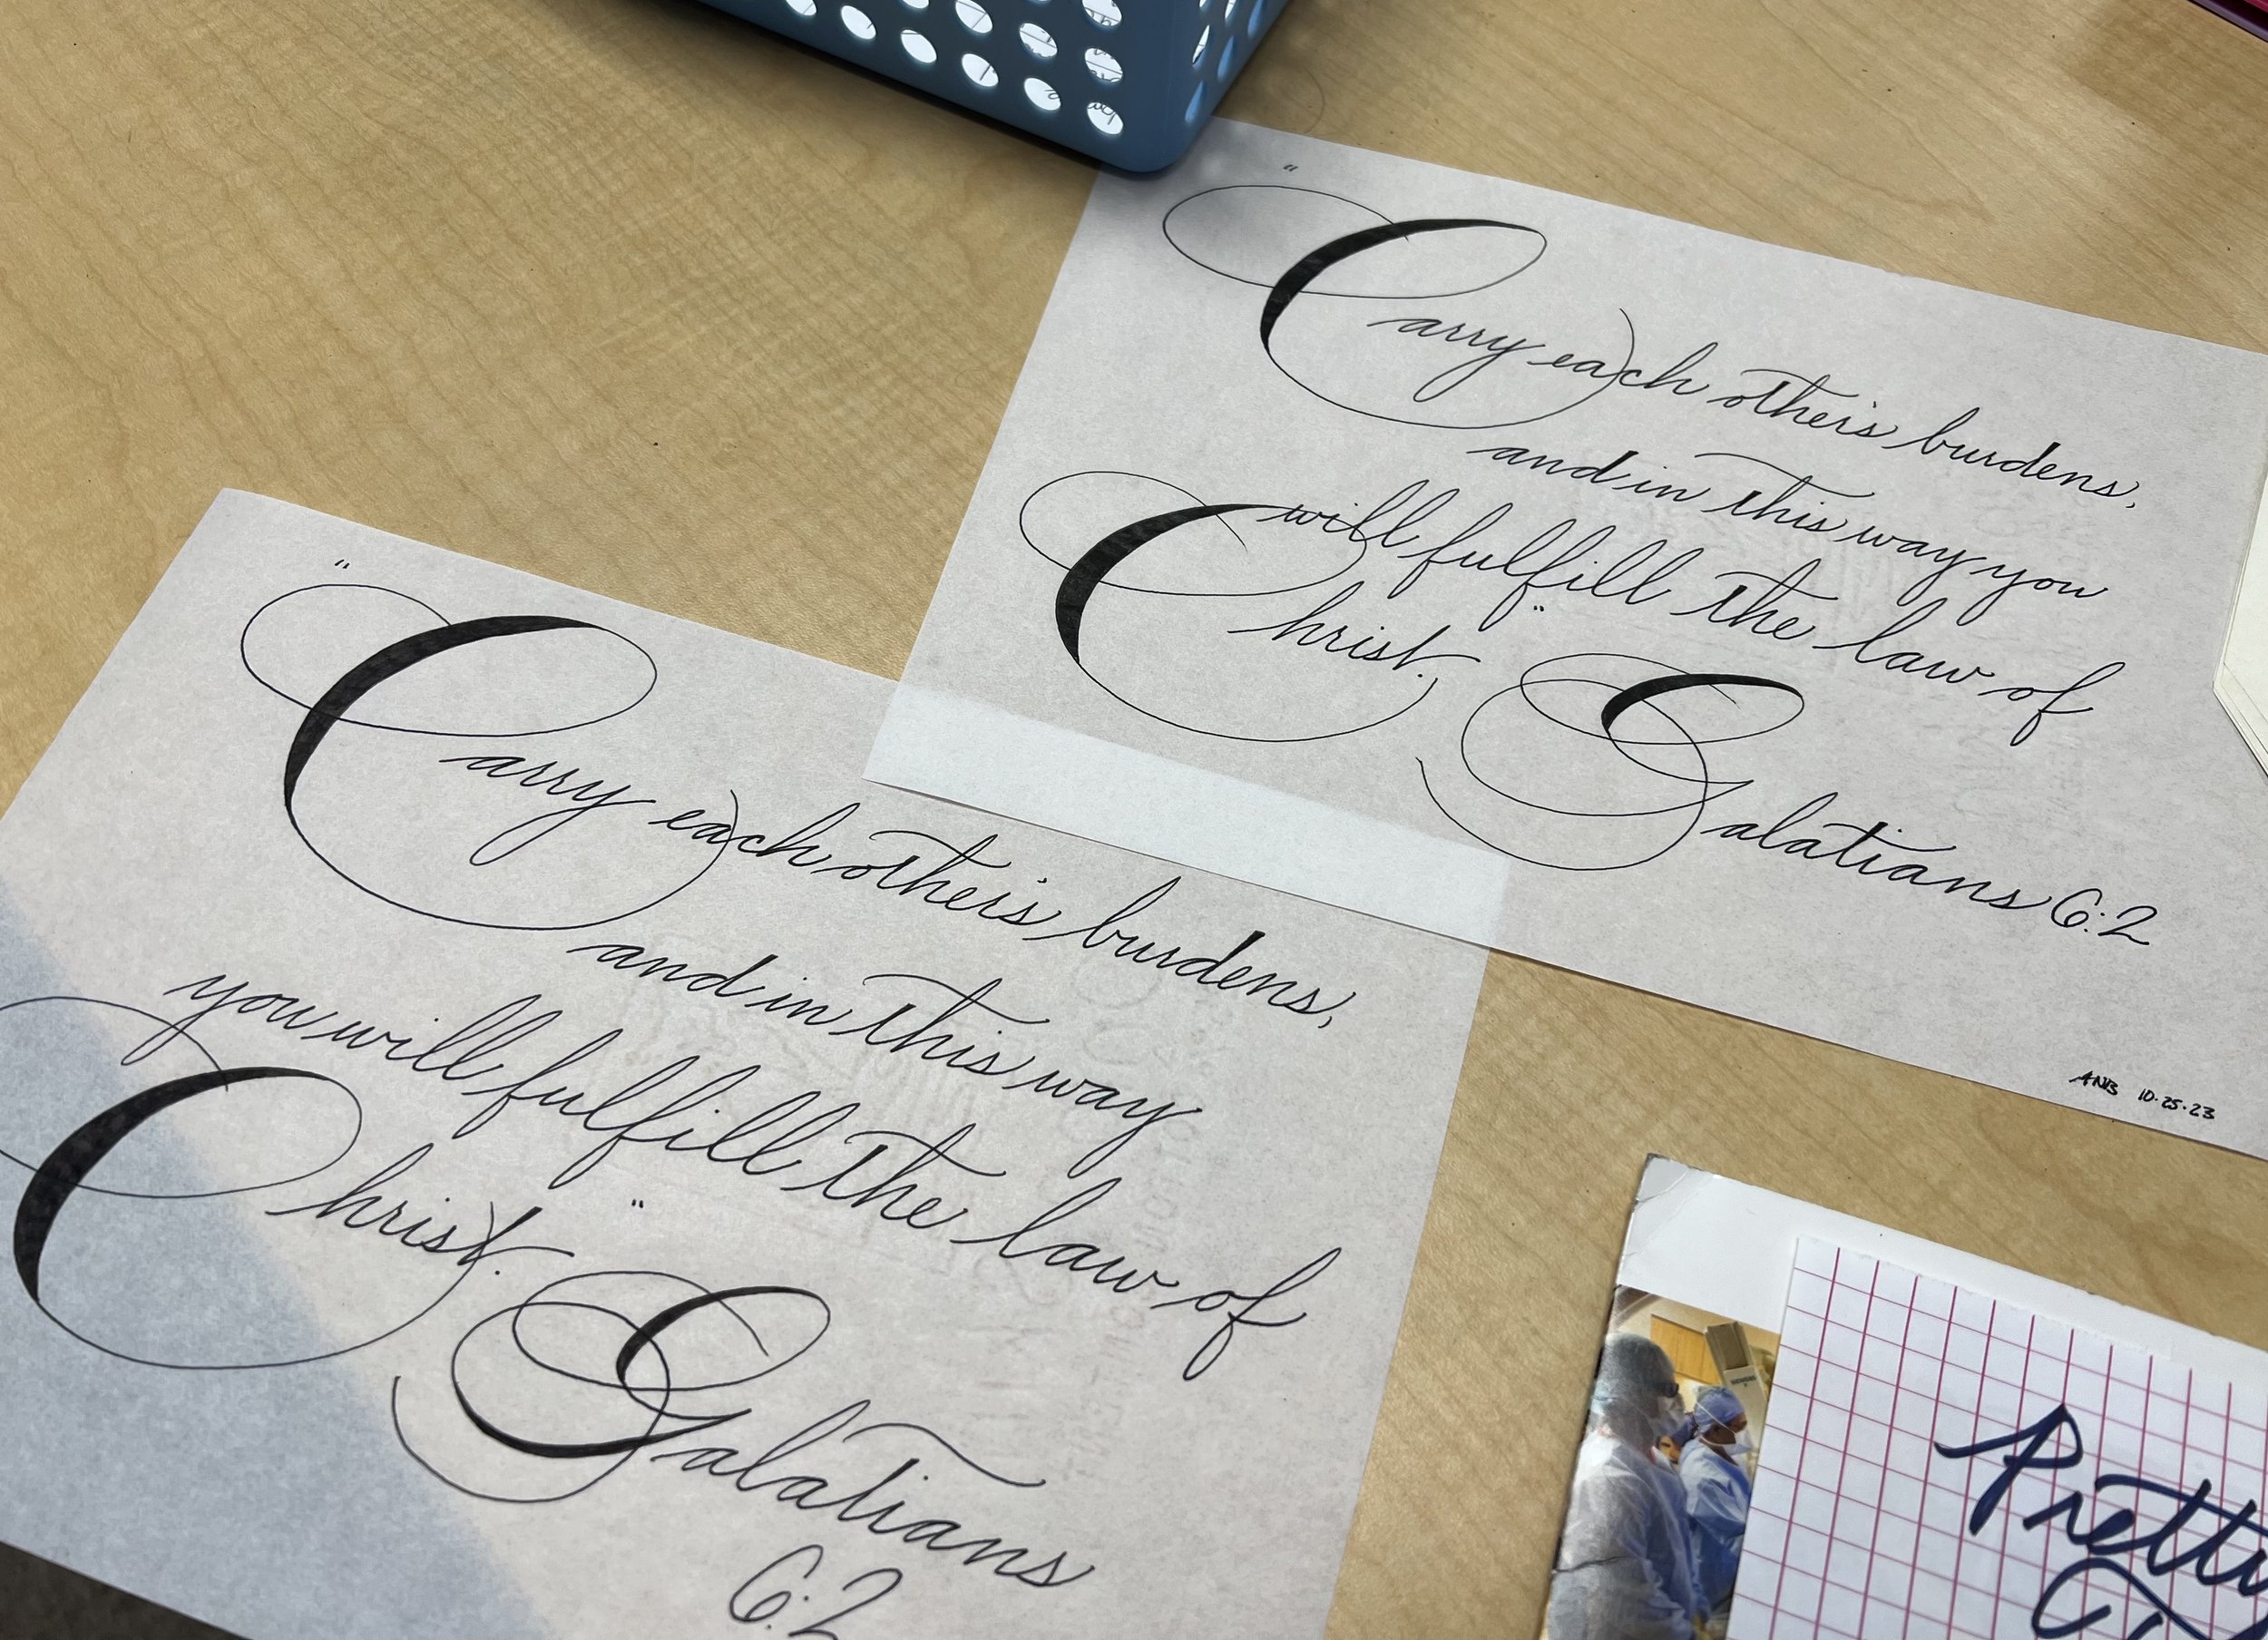 "Carry each other's burdens,
and in this way you
will fulfill the law of
Christ."
Galatians 6:2
ANB 10·25·23
"Carry each other's burdens,
and in this way
you will fulfill the law of
Christ."
Galatians
6:2
Pretty